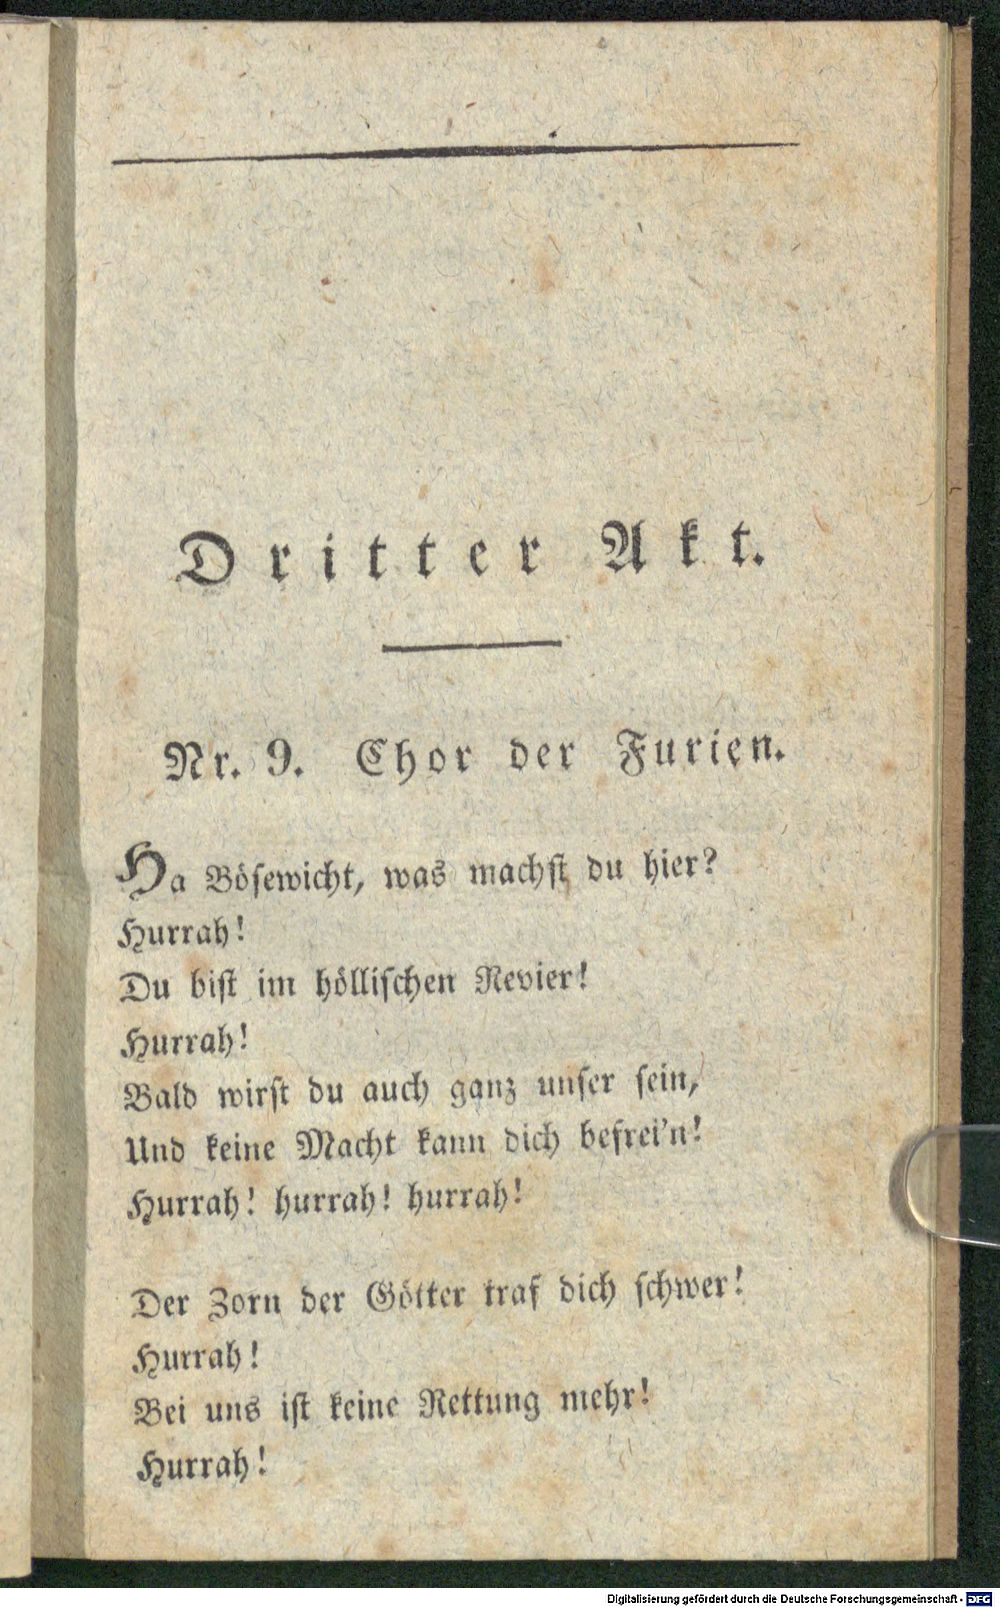 Dritter Akt.
Nr. 9. Chor der Furien.
Ha Bösewicht, was machst du hier?
Hurrah!
Du bist im höllischen Revier!
Hurrah!
Bald wirst du auch ganz unser sein,
Und keine Macht kann dich befrei'n!
Hurrah! hurrah! hurrah!
Der Zorn der Götter traf dich schwer!
Hurrah!
Bei uns ist keine Rettung mehr!
Hurrah!
Digitalisierung gefördert durch die Deutsche Forschungsgemeinschaft - DFG